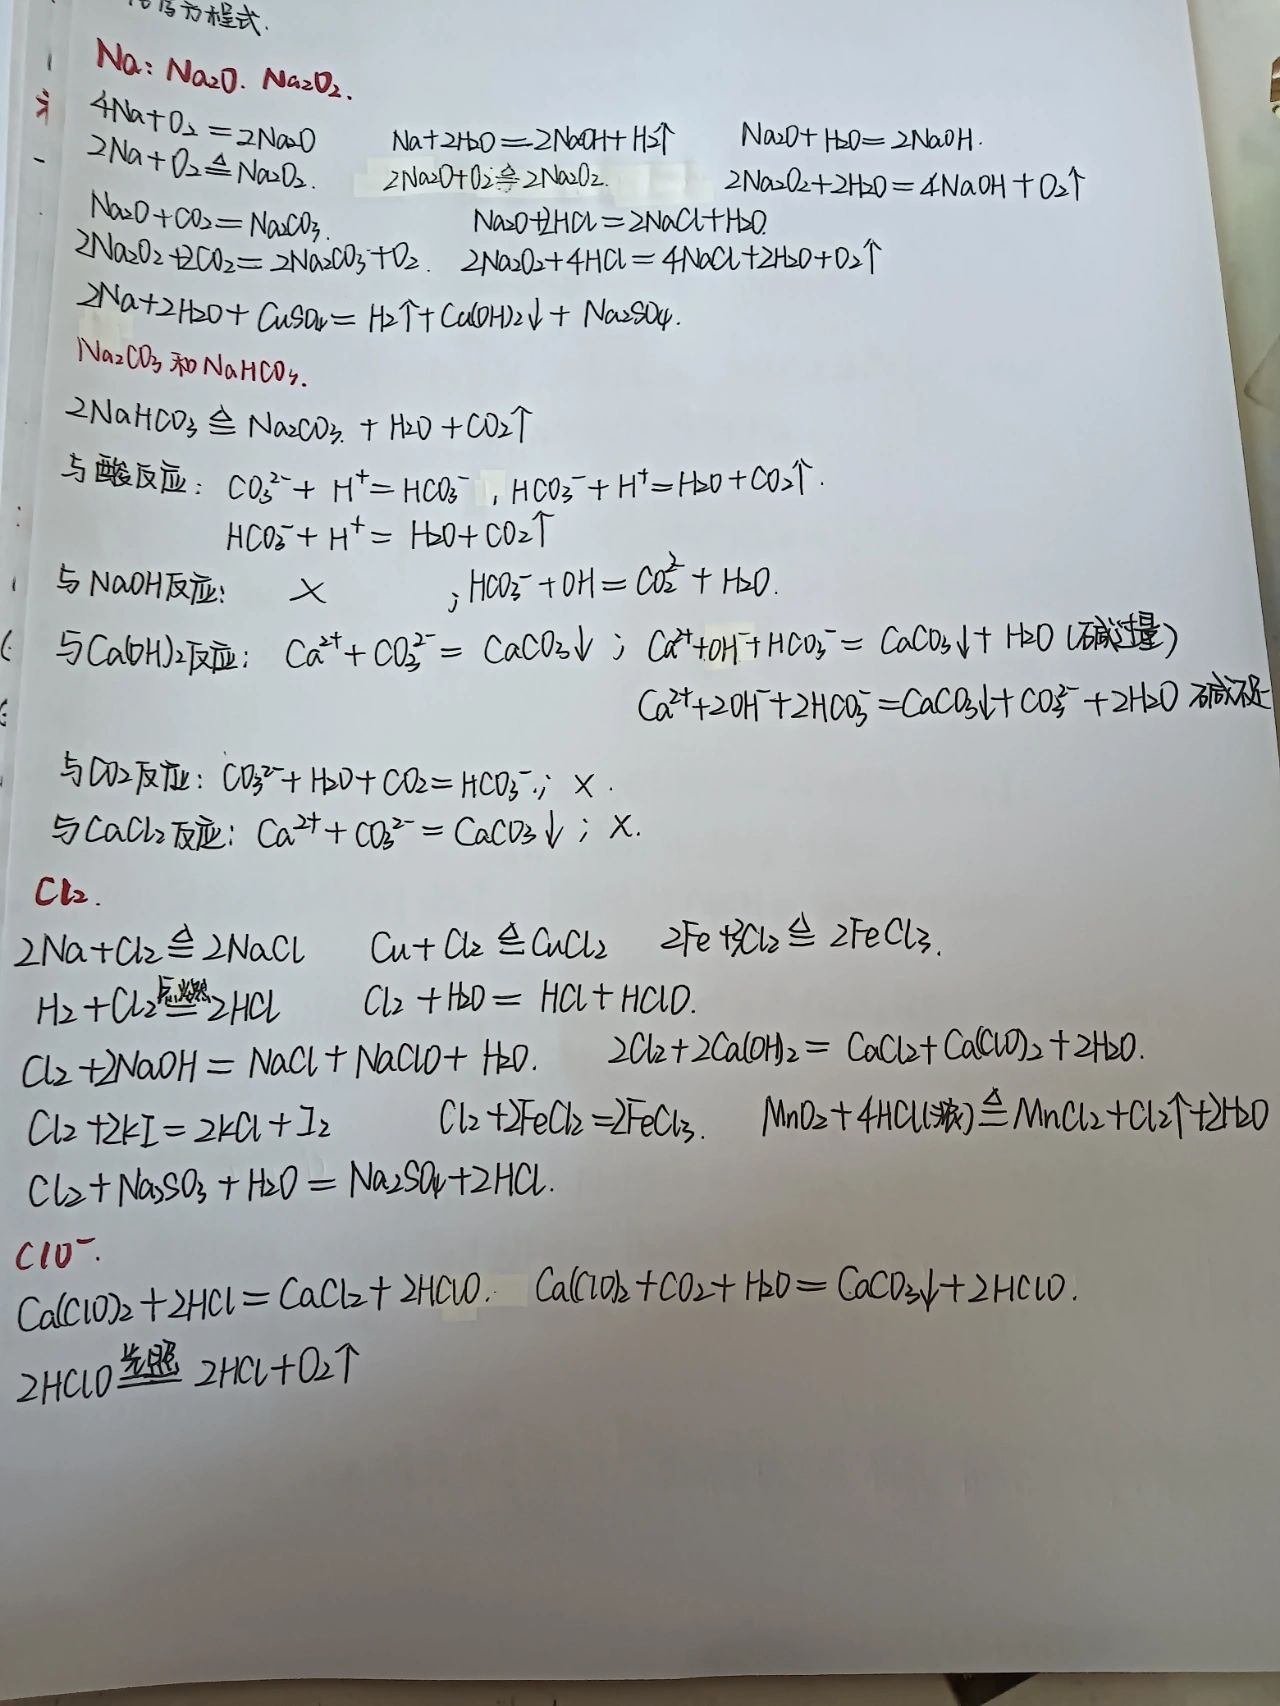 方程式.
Na: Na₂O. Na₂O₂.
4Na+O₂=2Na₂O Na+2H₂O=2NaOH+H₂↑ Na₂O+H₂O=2NaOH.
2Na+O₂≜Na₂O₂. 2Na₂O+O₂≜2Na₂O₂. 2Na₂O₂+2H₂O=4NaOH+O₂↑
Na₂O+CO₂=Na₂CO₃. Na₂O+2HCl=2NaCl+H₂O.
2Na₂O₂+2CO₂=2Na₂CO₃+O₂. 2Na₂O₂+4HCl=4NaCl+2H₂O+O₂↑
2Na+2H₂O+CuSO₄=H₂↑+Cu(OH)₂↓+Na₂SO₄.
Na₂CO₃和NaHCO₃.
2NaHCO₃≜Na₂CO₃.+H₂O+CO₂↑
与酸反应: CO₃²⁻+H⁺=HCO₃⁻, HCO₃⁻+H⁺=H₂O+CO₂↑.
HCO₃⁻+H⁺=H₂O+CO₂↑
与NaOH反应: × ; HCO₃⁻+OH=CO₂²⁻+H₂O.
与Ca(OH)₂反应: Ca²⁺+CO₃²⁻=CaCO₃↓; Ca²⁺+OH⁻+HCO₃⁻=CaCO₃↓+H₂O(碱过量)
Ca²⁺+2OH⁻+2HCO₃⁻=CaCO₃↓+CO₃²⁻+2H₂O 碱不足
与CO₂反应: CO₃²⁻+H₂O+CO₂=HCO₃⁻.; ×.
与CaCl₂反应: Ca²⁺+CO₃²⁻=CaCO₃↓; ×.
Cl₂.
2Na+Cl₂≜2NaCl Cu+Cl₂≜CuCl₂ 2Fe+3Cl₂≜2FeCl₃.
H₂+Cl₂ 点燃= 2HCl Cl₂+H₂O=HCl+HClO.
Cl₂+2NaOH=NaCl+NaClO+H₂O. 2Cl₂+2Ca(OH)₂=CaCl₂+Ca(ClO)₂+2H₂O.
Cl₂+2KI=2KCl+I₂ Cl₂+2FeCl₂=2FeCl₃. MnO₂+4HCl(浓)≜MnCl₂+Cl₂↑+2H₂O
Cl₂+Na₂SO₃+H₂O=Na₂SO₄+2HCl.
ClO⁻.
Ca(ClO)₂+2HCl=CaCl₂+2HClO. Ca(ClO)₂+CO₂+H₂O=CaCO₃↓+2HClO.
2HClO 光照= 2HCl+O₂↑